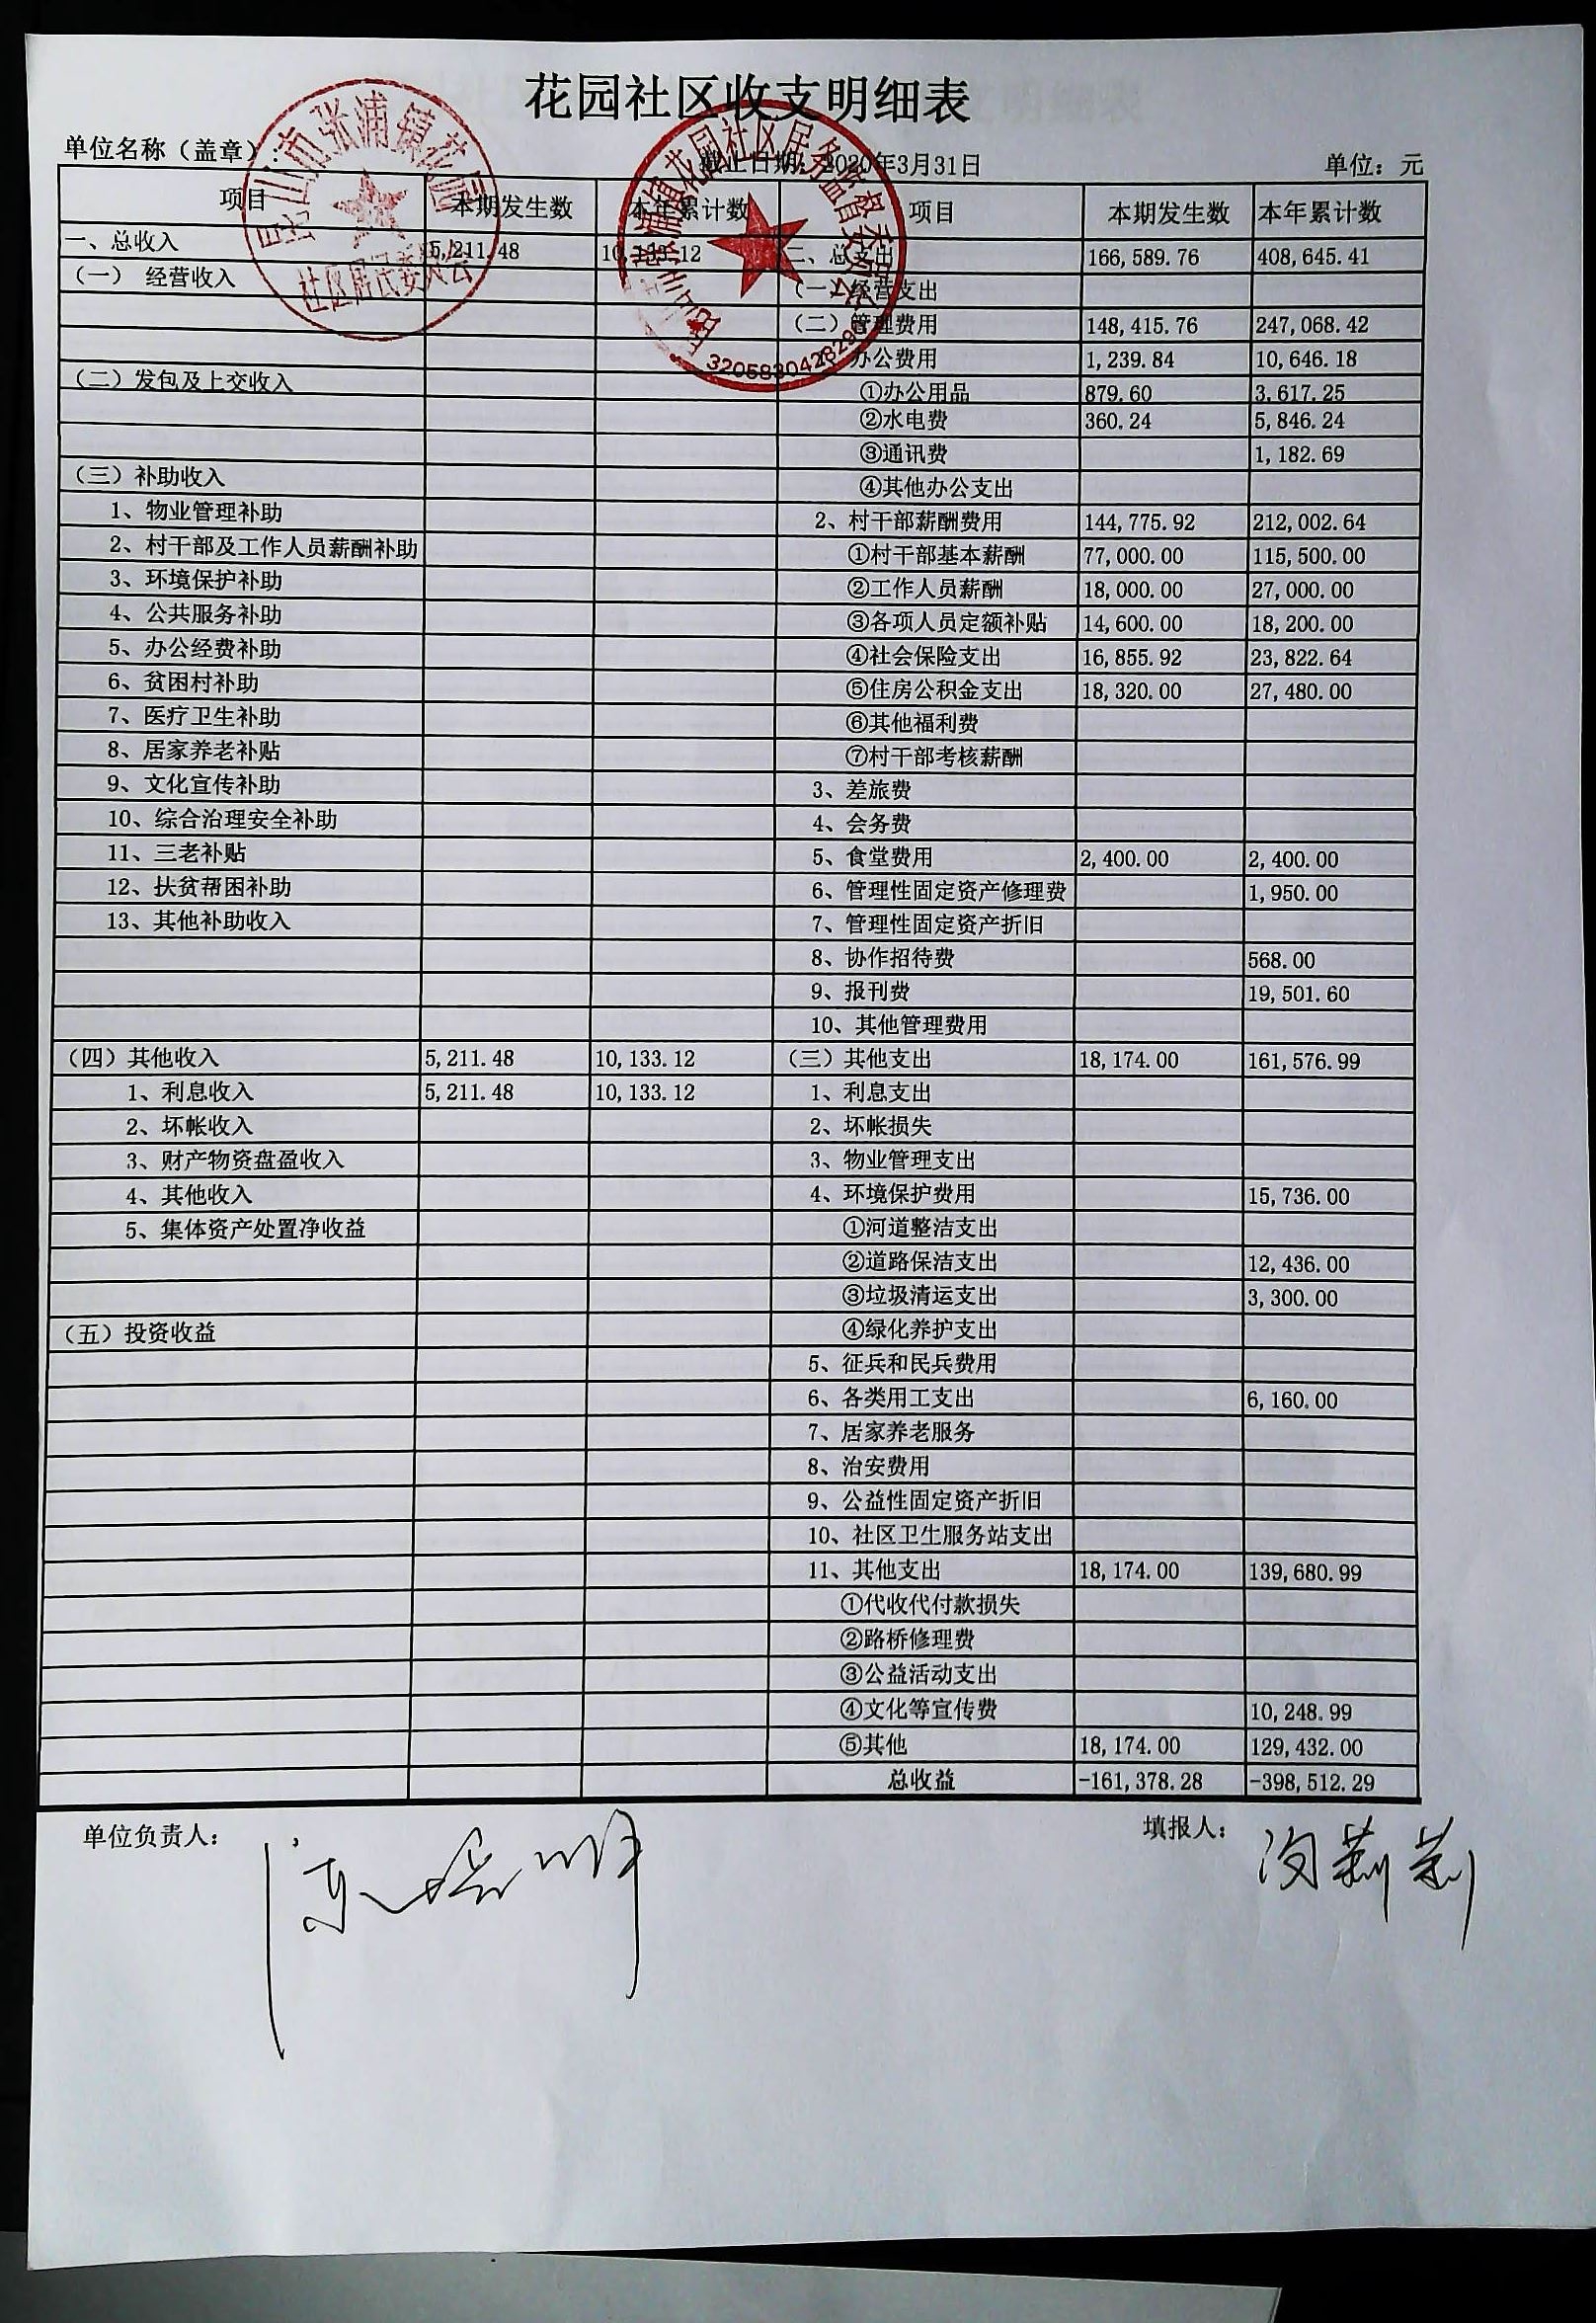 花园社区收支明细表
单位名称（盖章）： 截止日期：2020年3月31日 单位：元
项目 本期发生数 本年累计数 项目 本期发生数 本年累计数
一、总收入 5,211.48 10,133.12 二、总支出 166,589.76 408,645.41
（一） 经营收入 （一）经营支出
（二）管理费用 148,415.76 247,068.42
办公费用 1,239.84 10,646.18
（二）发包及上交收入 ①办公用品 879.60 3,617.25
②水电费 360.24 5,846.24
③通讯费 1,182.69
（三）补助收入 ④其他办公支出
1、物业管理补助 2、村干部薪酬费用 144,775.92 212,002.64
2、村干部及工作人员薪酬补助 ①村干部基本薪酬 77,000.00 115,500.00
3、环境保护补助 ②工作人员薪酬 18,000.00 27,000.00
4、公共服务补助 ③各项人员定额补贴 14,600.00 18,200.00
5、办公经费补助 ④社会保险支出 16,855.92 23,822.64
6、贫困村补助 ⑤住房公积金支出 18,320.00 27,480.00
7、医疗卫生补助 ⑥其他福利费
8、居家养老补贴 ⑦村干部考核薪酬
9、文化宣传补助 3、差旅费
10、综合治理安全补助 4、会务费
11、三老补贴 5、食堂费用 2,400.00 2,400.00
12、扶贫帮困补助 6、管理性固定资产修理费 1,950.00
13、其他补助收入 7、管理性固定资产折旧
8、协作招待费 568.00
9、报刊费 19,501.60
10、其他管理费用
（四）其他收入 5,211.48 10,133.12 （三）其他支出 18,174.00 161,576.99
1、利息收入 5,211.48 10,133.12 1、利息支出
2、坏帐收入 2、坏帐损失
3、财产物资盘盈收入 3、物业管理支出
4、其他收入 4、环境保护费用 15,736.00
5、集体资产处置净收益 ①河道整洁支出
②道路保洁支出 12,436.00
③垃圾清运支出 3,300.00
（五）投资收益 ④绿化养护支出
5、征兵和民兵费用
6、各类用工支出 6,160.00
7、居家养老服务
8、治安费用
9、公益性固定资产折旧
10、社区卫生服务站支出
11、其他支出 18,174.00 139,680.99
①代收代付款损失
②路桥修理费
③公益活动支出
④文化等宣传费 10,248.99
⑤其他 18,174.00 129,432.00
总收益 -161,378.28 -398,512.29
单位负责人： 填报人：
昆山市张浦镇花园
社区居民委员会
张浦镇花园社区居务监督委员会